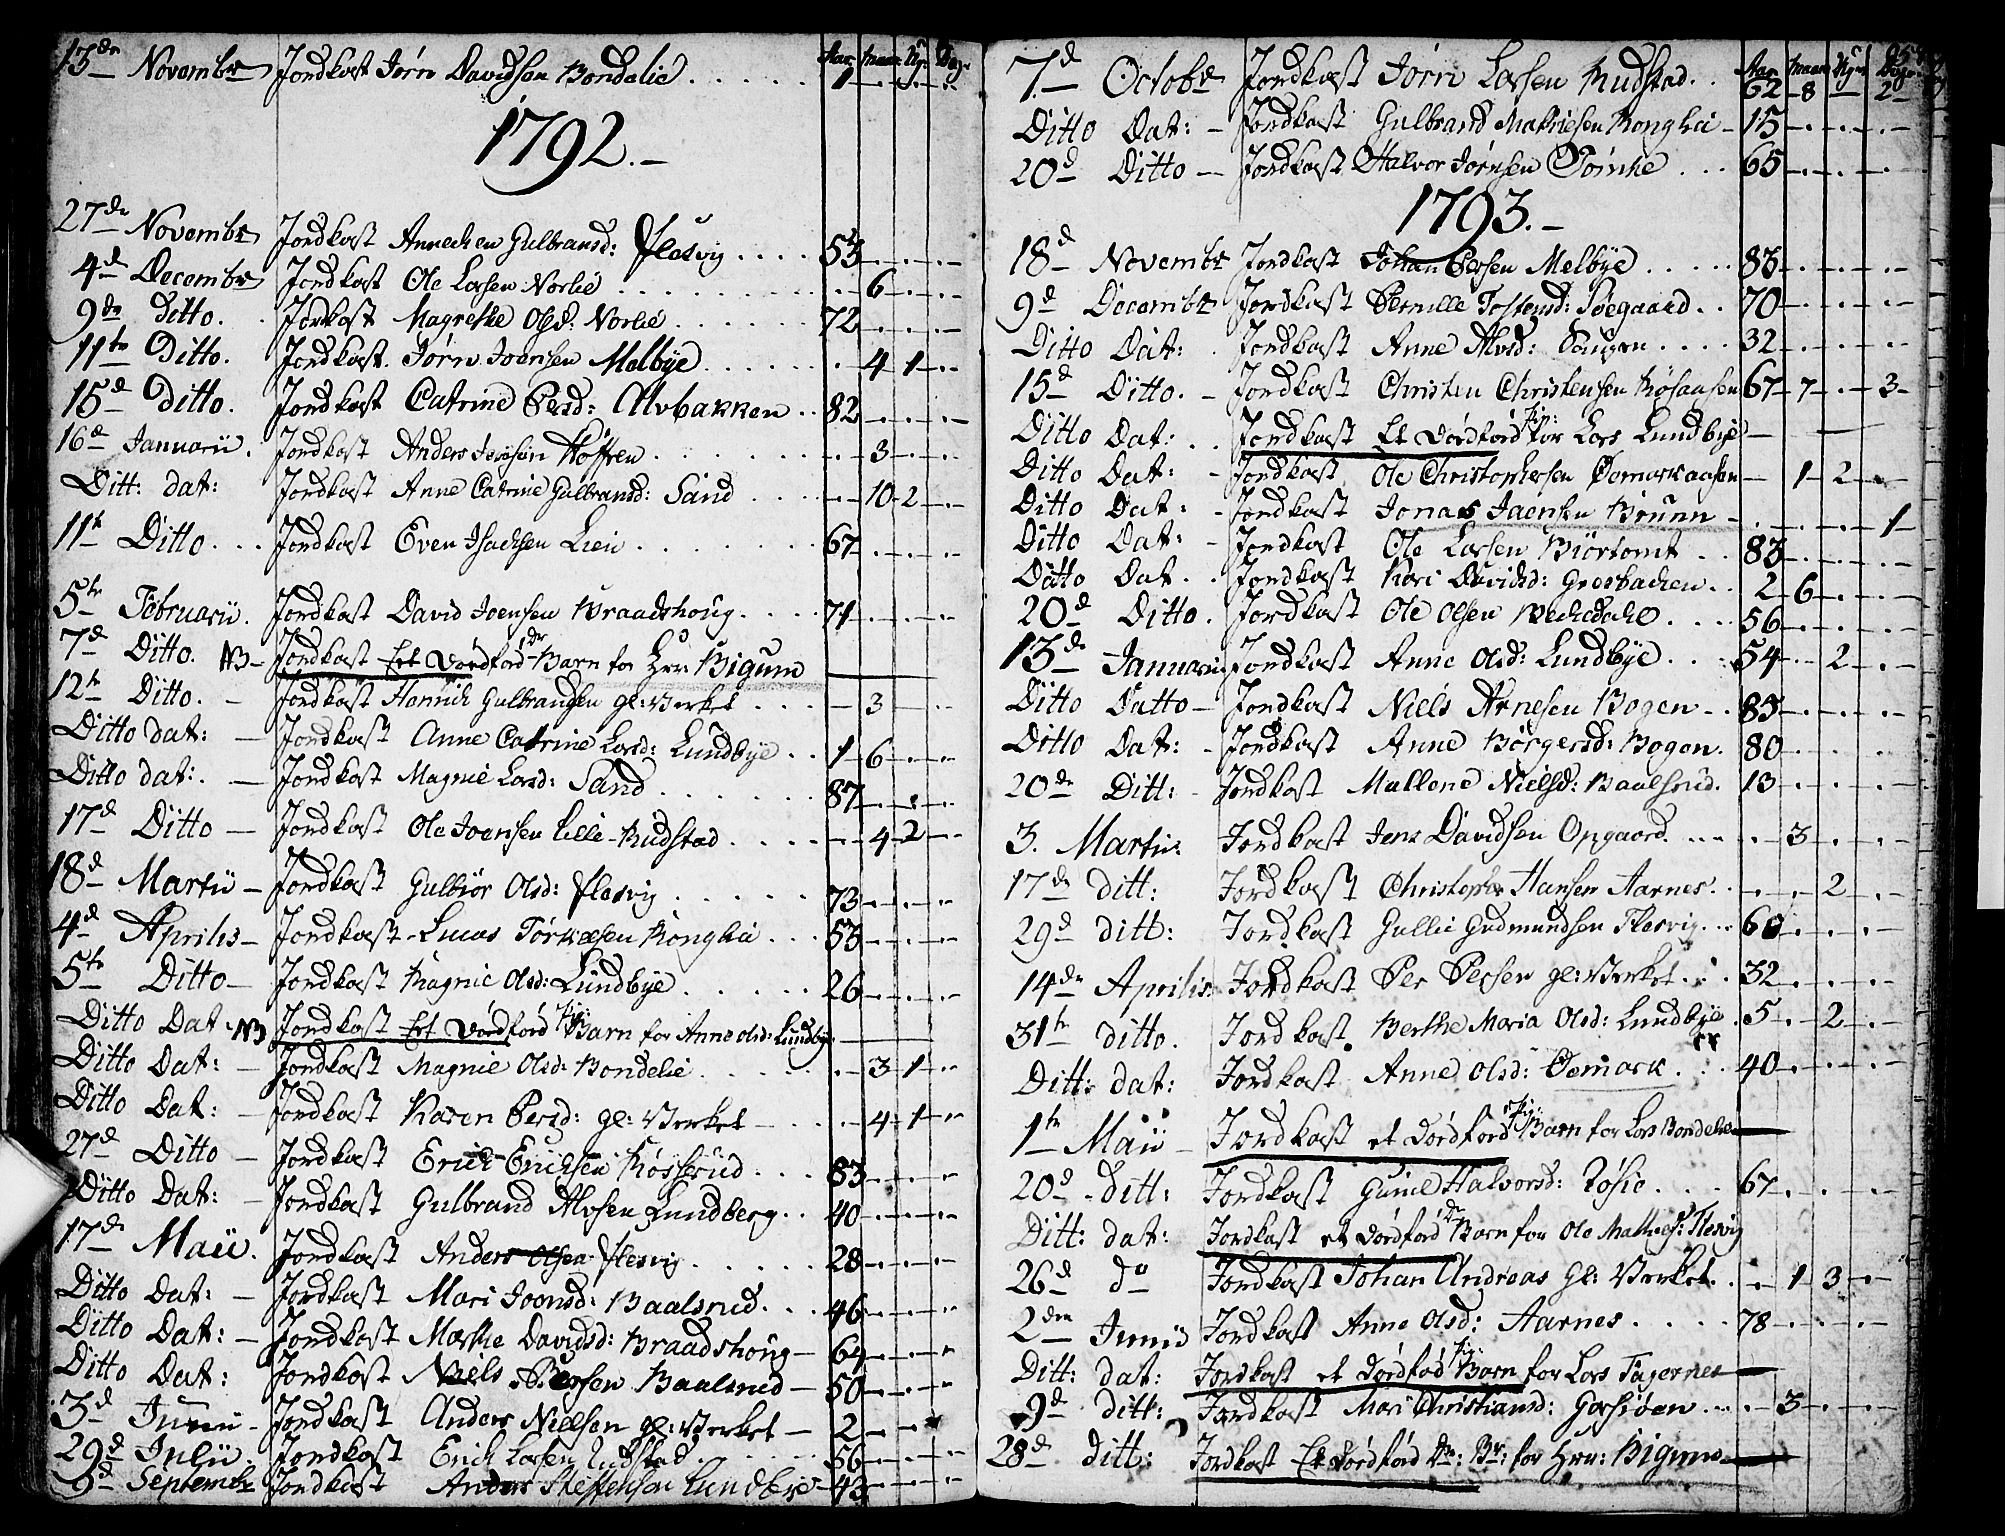 Aar Maan Ug: Dag
13de Novembr Jordkast Jørn Davidsen Bondelie . . . . . 1
1792.
27de Novembr Jordkast Annechen Gulbransd: Flesvig . . . . 53
4d Decembr Jordkast Ole Larsen Norlie . . . . . 6
9de Ditto. Jordkast Magrethe Olsd: Norlie . . . . . 72
11te Ditto. Jordkast Jørn Joensen Melbÿe . . . . . 4 1
15d Ditto. Jordkast Catrine Persd: Alvbakken . . 82
16d Januarii. Jordkast Anders 3
Ditt: dat: Jordkast Anne Catrine Gulbransd: Sand . . . . 10 2
11te Ditto . . . Jordkast Even Isachsen Lien . . . . . 67
5te Februarii. Jordkast David Joensen Braadshoug . . . 71
7d Ditto. NB Jordkast Et Dødfød Dr Barn for Hrr: Bigum
12te Ditto. Jordkast Henrich Gulbrandsen gl: Verket . . . 3
Ditto dat: Jordkast Anne Catrine Larsd: Lundbÿe . . 1 6
Ditto dat: Jordkast Magnie Larsd: Sand . . . . . 87
17d Ditto Jordkast Ole Joensen Lille-Rudstad . . . . 4 2
18d Martii Jordkast Gulbiør Olsd: Flesvig . . . . . 73
4d Aprilis Jordkast Lucas Konglie . . . 53
5te Ditto Jordkast Ragnie Olsd: Lundbÿe . . . . . 26
Ditto Dat NB Jordkast Et Dødfød Pig: Barn for Anne Olsd: Lundbÿ:
Ditto Dat: Jordkast Magnie Olsd: Bondelie . . . . . 3 1
Ditto Dat: Jordkast Karen Persd: gl: Verket . . 4 1
27d Ditto Jordkast Erich Erichsen Kosserud . . . 83
Ditto Dat: Jordkast Gulbrand Alvsen Lundberg . . 40
17de Maii. Jordkast Anders Olsen Flesvig . . . . . 28
Ditto Dat: Jordkast Mari Joensd: Baalsrud . . . 46
Ditto Dat: Jordkast Marthe Davidsd: Braadshoug 64
Ditto Dat: Jordkast Niels Persen Baalsrud 50
3d Junii Jordkast Anders Nielsen gl: Verket 2
29d Julii. Jordkast Erich Larsen Rudstad . . . . . 56
9d Septembr Jordkast Anders Steffensen Lundbÿe 43
Aar Maan Ug: Dage
7d Octobr Jordkast Jørn Larsen Rudstad . . 62 8 2
Ditto Dat: Jordkast Gulbrand Mathiesen Konglie 15
20d Ditto Jordkast Halvor Jørnsen Tømte . . . 65
1793.
18d Novembr Jordkast Johan Persen Melbÿe . . . . . 83
9d Decembr Jordkast Pernille Tostensd: Søegaard . . 70
Ditto Dat: Jordkast Anne Alvsd: . . . . 32
15d Ditto. Jordkast Christen Christensen Kosaasen 67 7 3
Ditto Dat: Jordkast Et Dødfød Pig: for Lars Lundbÿe
Ditto Dat: Jordkast Ole Christophersen Øemarkaasen 1 2
Ditto Dat: Jordkast Jonas Jaensen Bruun 1
Ditto Dat: Jordkast Ole Larsen Biørtomt . . 83
Ditto Dat. Jordkast Kari Davidsd: Gresbachen . . 2 6
20d Ditto. Jordkast Ole Olsen . . . . 56
13de Januarii Jordkast Anne Olsd: Lundbÿe . . . 54 2
Ditto Datto Jordkast Niels Arnesen Bogen . . 83
Ditto Dat: Jordkast Anne Børgersd: Bogen. 80
20de Ditt: Jordkast Mallene Nielsd: Baalsrud. 13
3. Martii: Jordkast Jens Davidsen Opgaard . . . . 3
17de ditt: Jordkast Christopher Hansen Aarnes . . 2
29d ditt: Jordkast Gullie Gudmundsen Flesvig . . . 60
14de Aprilis: Jordkast Per Persen gl: Verket . . . 32
31te ditto. Jordkast Berthe Maria Olsd: Lundbÿe . 5 2
Ditt: dat: Jordkast Anne Olsd: Øemark . . . 40
1te Maii Jordkast et Dødfød Pig: Barn for Lars Bondelie
20d ditt: Jordkast Gunild Halvorsd: . . . . 67
Ditt: dat: Jordkast et Dødfød Dr Barn for Ole Mathies: Flesvig
26d do Jordkast Johan Andreas Gl: Verket . . . 1 3
2den Junii Jordkast Anne Olsd: Aarnes . . . . . 78
Ditt: dat: Jordkast et Dødfød Pig: Barn for Lars Fagernes
9d ditt: Jordkast Mari Christiansd: Garsiøen . . . . 3
28d ditt: Jordkast Et Dødfød Dr: Br: for Hrr: Bigum